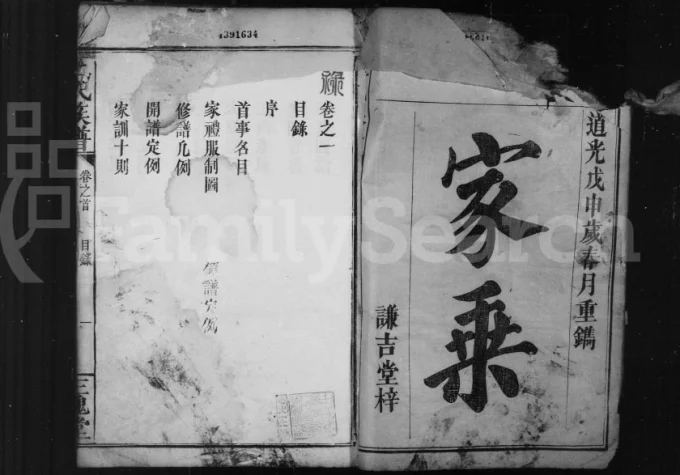 道光戊申歲春月重鐫
家乘
謙吉堂梓
卷之一
目錄
序
首事名目
家禮服制圖
修譜凡例
開譜定例
家訓十則
譜定例
氏族譜
卷之首
目錄
一
三槐堂
4391634
FamilySearch